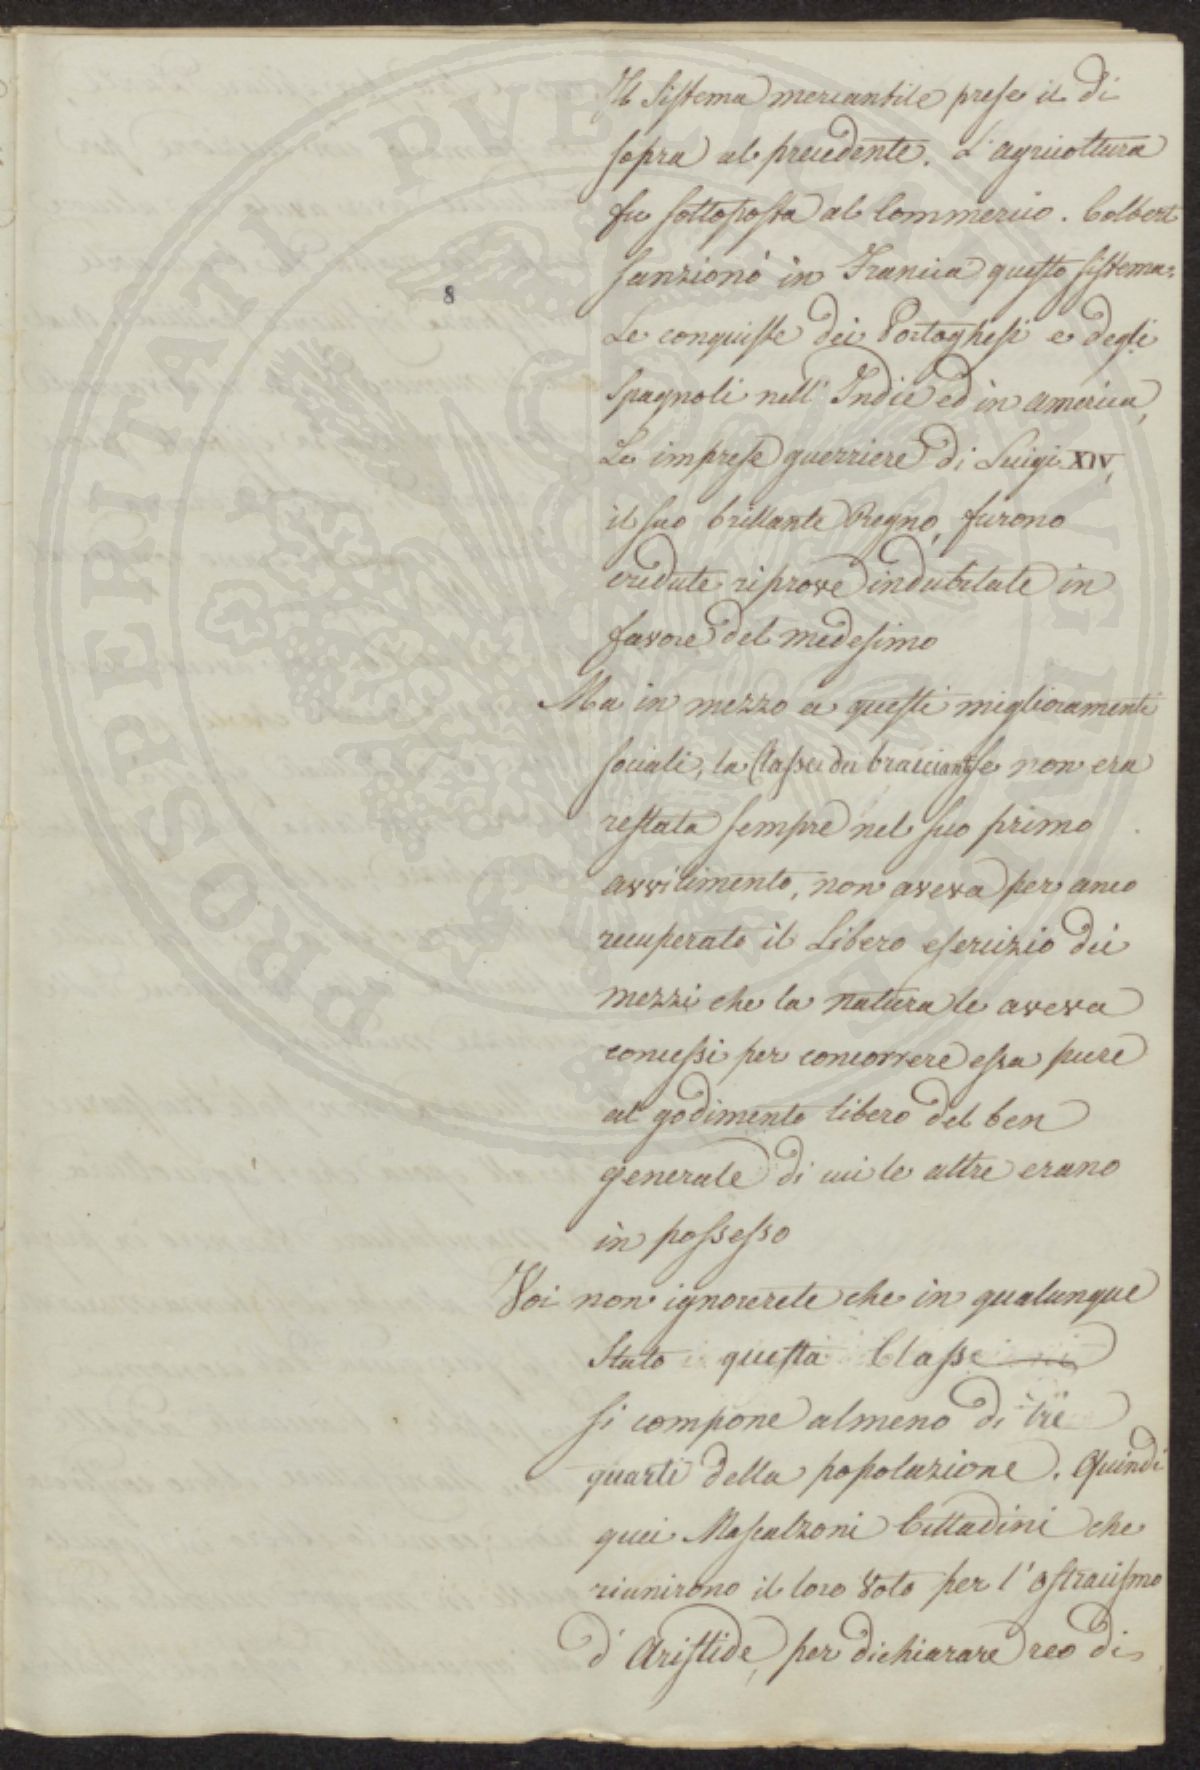 Il Sistema mercantile prese il di
sopra al precedente. L'agricoltura
fu sottoposta al Commercio. Colbert
sanzionò in Francia questo sistema.
Le conquiste dei Portoghesi e degli
Spagnoli nell'Indie ed in America,
Le imprese guerriere di Luigi XIV,
il suo brillante Regno, furono
credute riprove indubitate in
favore del medesimo
8
Ma in mezzo a questi miglioramenti
sociali, la Classe dei braccianti se non era
restata sempre nel suo primo
avvilimento, non aveva per anco
recuperato il Libero esercizio dei
mezzi che la natura le aveva
concessi per concorrere essa pure
al godimento libero del ben
generale di cui le altre erano
in possesso
Voi non ignorerete che in qualunque
Stato questa Classe
si compone almeno di tre
quarti della popolazione. Quindi
quei Mascalzoni Cittadini che
riunirono il loro Voto per l'ostracismo
d'Aristide, per dichiarare reo di
PROSPERITATI PVBLICAE